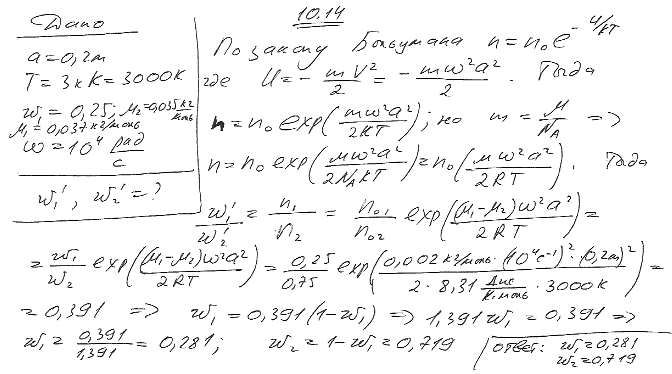 10.14
Дано
a = 0,2м
T = 3кК = 3000К
w₁ = 0,25; μ₂ = 0,035 кг/моль
μ₁ = 0,037 кг/моль
ω = 10⁴ рад/с
w₁', w₂' = ?
По закону Больцмана n = n₀e^(-U/kT)
где U = - mV²/2 = - mω²a²/2. Тогда
n = n₀ exp(mω²a²/2kT); но m = μ/N_A =>
n = n₀ exp(μω²a²/2N_A kT) = n₀(μω²a²/2RT). Тогда
w₁'/w₂' = n₁/n₂ = n₀₁/n₀₂ exp((μ₁-μ₂)ω²a²/2RT) =
= w₁/w₂ exp((μ₁-μ₂)ω²a²/2RT) = 0,25/0,75 exp(0,002 кг/моль · (10⁴с⁻¹)² · (0,2м)²/2 · 8,31 Дж/К·моль · 3000К) =
= 0,391 => w₁ = 0,391(1-w₁) => 1,391w₁ = 0,391 =>
w₁ = 0,391/1,391 = 0,281; w₂ = 1-w₁ = 0,719
ответ: w₁ = 0,281
w₂ = 0,719